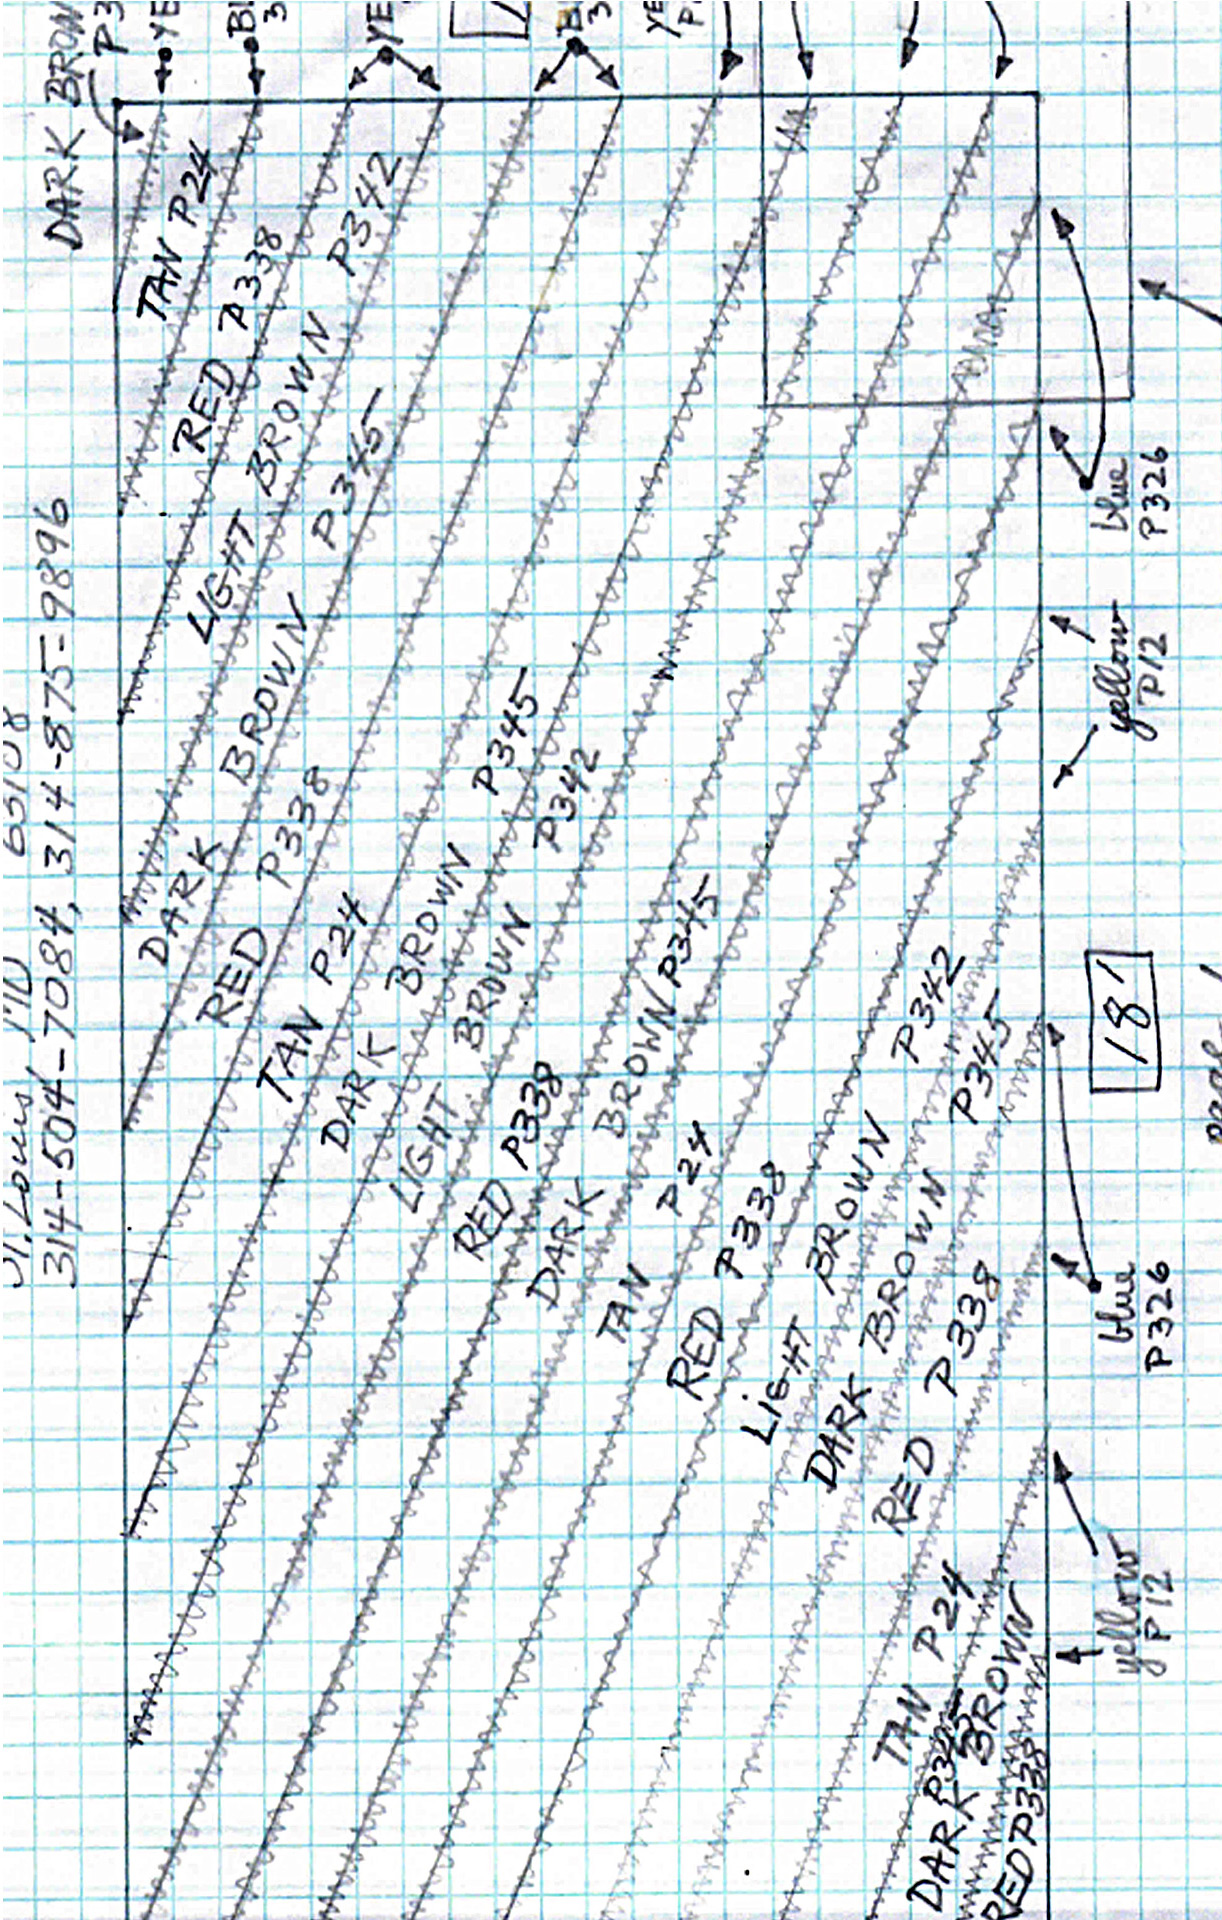 DARK BROW
P3
YE
BL
3
YE
B
3
YE
P
St, Louis, MO 63108
314-504-7084, 314-875-9896
TAN P24
RED P338
LIGHT BROWN P342
DARK BROWN P345
RED P338
TAN P24
DARK BROWN P345
LIGHT BROWN P342
RED P338
DARK BROWN P345
TAN P24
RED P338
LIGHT BROWN P342
DARK BROWN P345
RED P338
TAN P24
DARK BROWN
P345
RED P338
blue
P326
yellow
P12
18'
blue
P326
yellow
P12